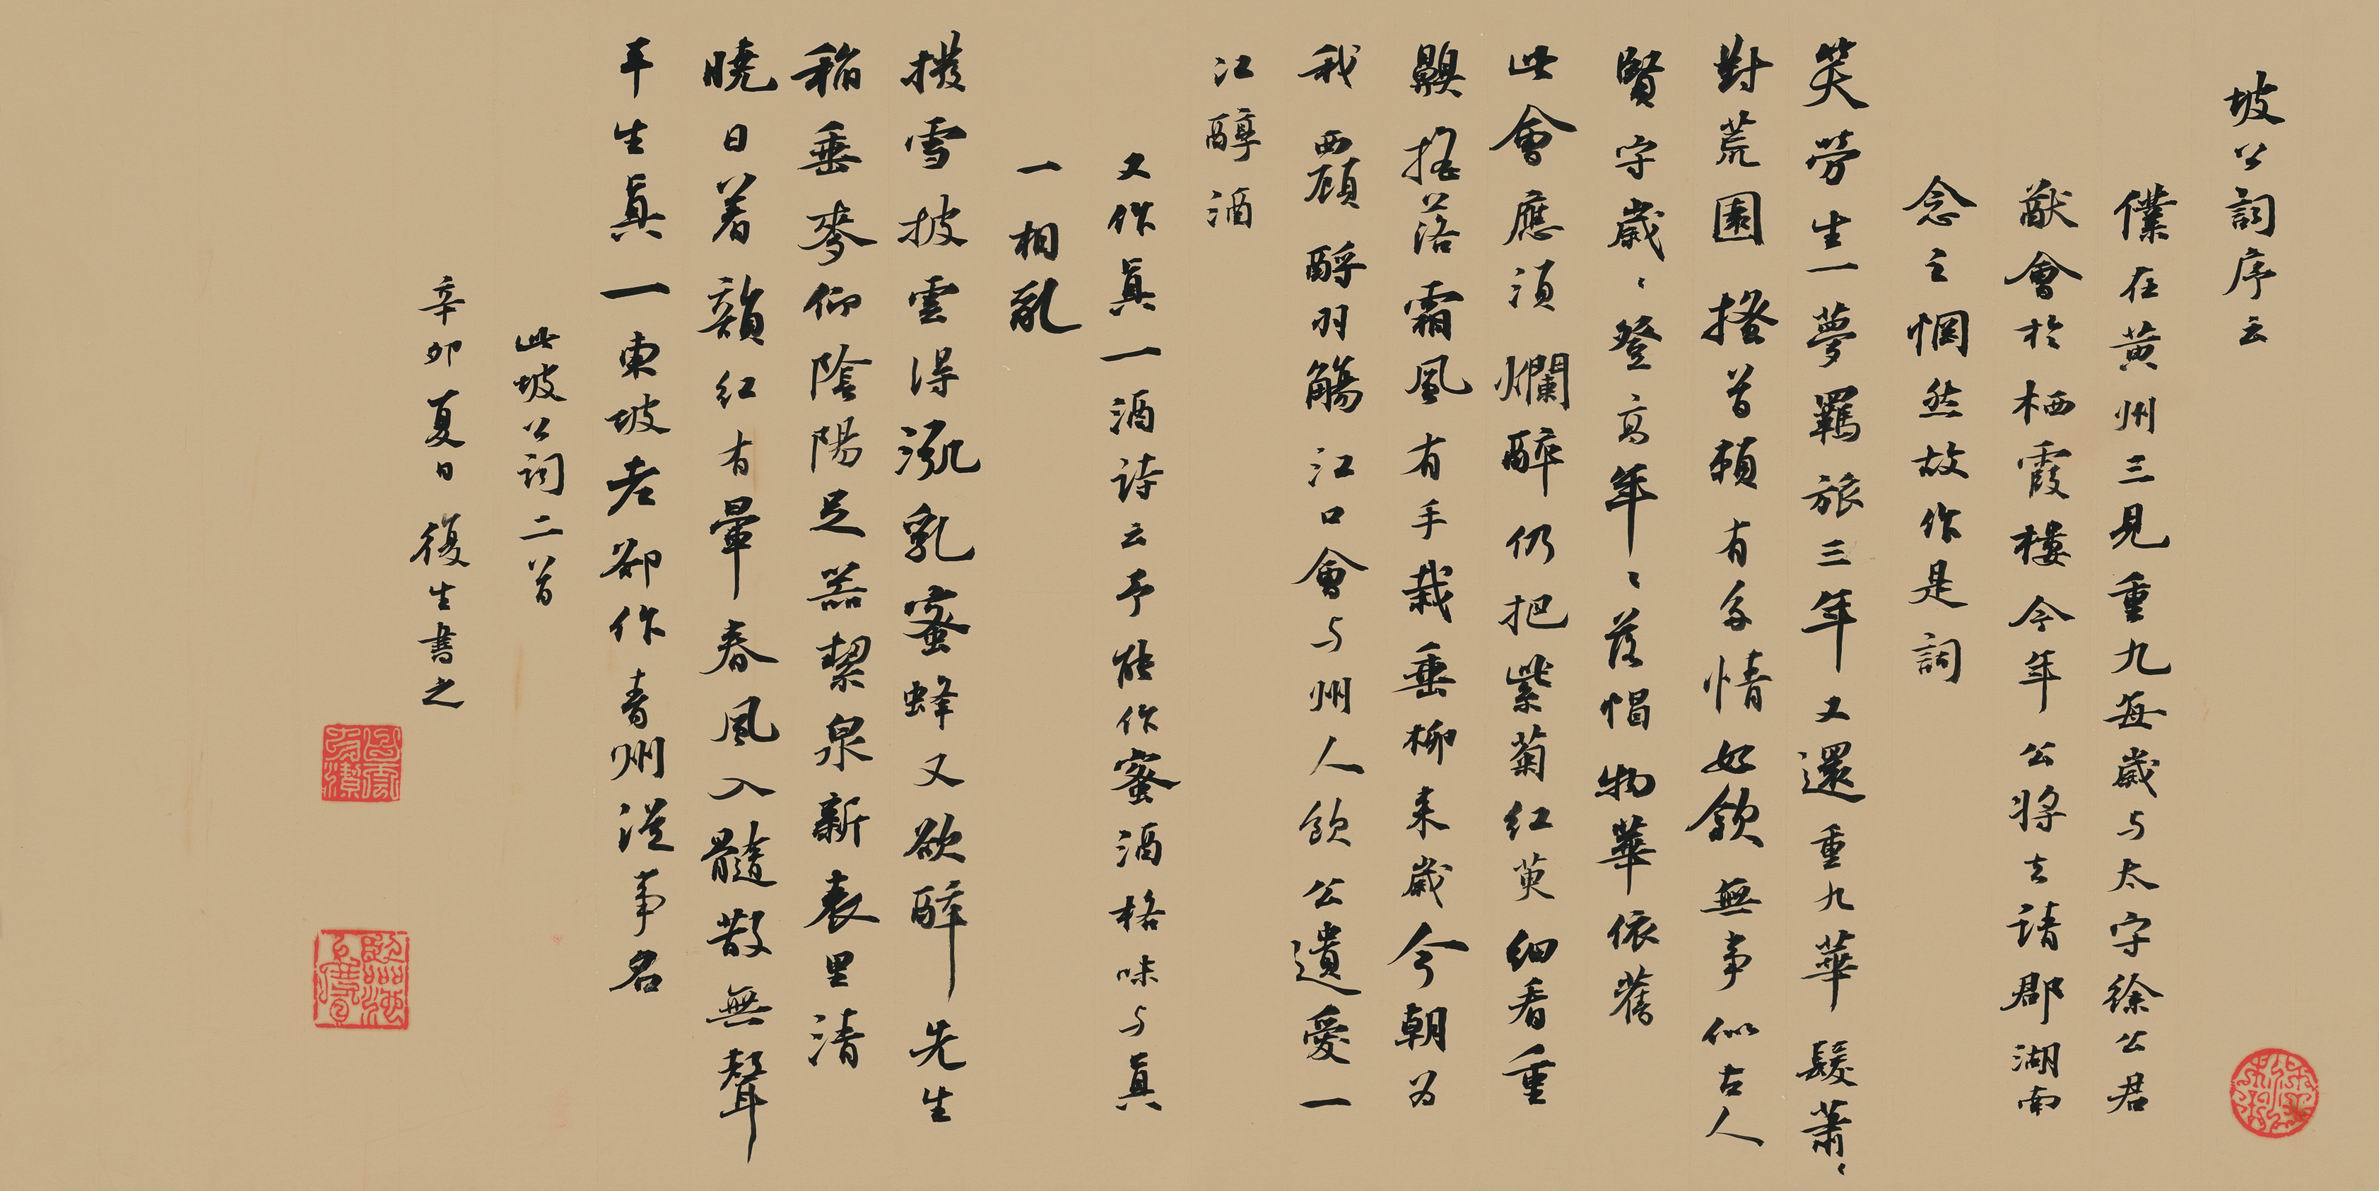 坡公詞序云
僕在黃州三見重九每歲与太守徐公君
猷會於栖霞樓今年公將去請郡湖南
念之惘然故作是詞
笑勞生一夢羈旅三年又還重九華髮蕭〻
對荒園搔首賴有多情好飲無事似古人
賢守歲〻登高年〻落帽物華依舊
此會應須爛醉仍把紫菊紅萸細看重
嗅搖落霜風有手栽垂柳來歲今朝為
我西顧酹羽觴江口會与州人飲公遺愛一
江醇酒
又作真一酒詩云予能作蜜酒格味与真
一相亂
撥雪披雲得泓乳蜜蜂又欲醉先生
稻垂麥仰陰陽足器絜泉新表里清
曉日着顏紅有暈春風入髓散無聲
平生真一東坡老卻作青州從事名
此坡公詞二首
辛卯夏日復生書之